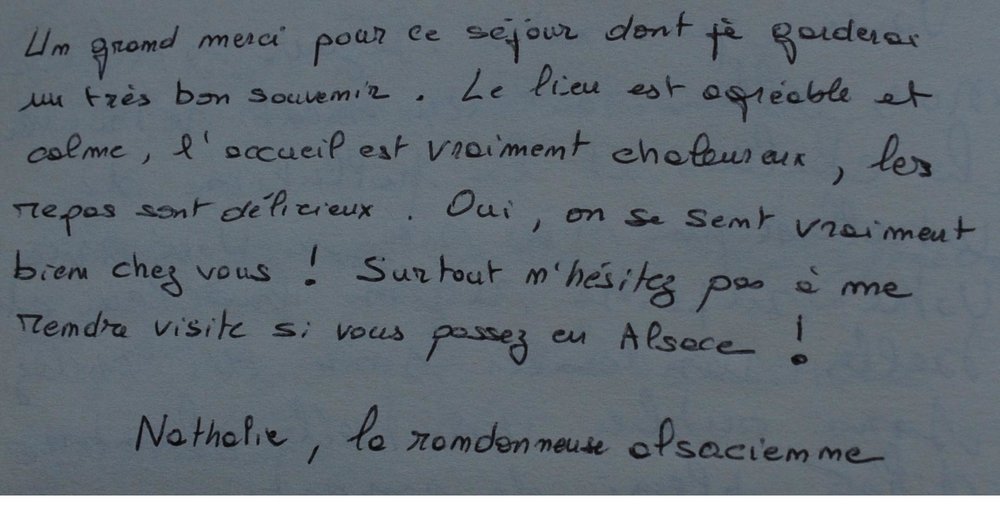 Un grand merci pour ce séjour dont je garderai
un très bon souvenir. Le lieu est agréable et
calme, l'accueil est vraiment chaleureux, les
repas sont délicieux. Oui, on se sent vraiment
bien chez vous ! Surtout n'hésitez pas à me
rendre visite si vous passez en Alsace !
Nathalie, la randonneuse alsacienne